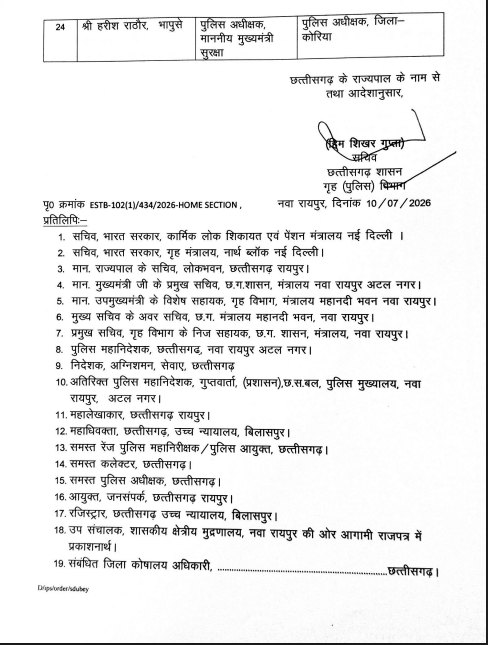 24 श्री हरीश राठौर, भापुसे पुलिस अधीक्षक, माननीय मुख्यमंत्री सुरक्षा पुलिस अधीक्षक, जिला– कोरिया
छत्तीसगढ़ के राज्यपाल के नाम से
तथा आदेशानुसार,
(हिम शिखर गुप्ता)
सचिव
छत्तीसगढ़ शासन
गृह (पुलिस) विभाग
पृ0 क्रमांक ESTB-102(1)/434/2026-HOME SECTION , नवा रायपुर, दिनांक 10/07/2026
प्रतिलिपिः–
1. सचिव, भारत सरकार, कार्मिक लोक शिकायत एवं पेंशन मंत्रालय नई दिल्ली ।
2. सचिव, भारत सरकार, गृह मंत्रालय, नार्थ ब्लॉक नई दिल्ली।
3. मान. राज्यपाल के सचिव, लोकभवन, छत्तीसगढ़ रायपुर।
4. मान. मुख्यमंत्री जी के प्रमुख सचिव, छ.ग.शासन, मंत्रालय नवा रायपुर अटल नगर।
5. मान. उपमुख्यमंत्री के विशेष सहायक, गृह विभाग, मंत्रालय महानदी भवन नवा रायपुर।
6. मुख्य सचिव के अवर सचिव, छ.ग. मंत्रालय महानदी भवन, नवा रायपुर।
7. प्रमुख सचिव, गृह विभाग के निज सहायक, छ.ग. शासन, मंत्रालय, नवा रायपुर।
8. पुलिस महानिदेशक, छत्तीसगढ़, नवा रायपुर अटल नगर।
9. निदेशक, अग्निशमन, सेवाए, छत्तीसगढ़
10. अतिरिक्त पुलिस महानिदेशक, गुप्तवार्ता, (प्रशासन),छ.स.बल, पुलिस मुख्यालय, नवा
रायपुर, अटल नगर।
11. महालेखाकार, छत्तीसगढ़ रायपुर।
12. महाधिवक्ता, छत्तीसगढ़, उच्च न्यायालय, बिलासपुर।
13. समस्त रेंज पुलिस महानिरीक्षक/पुलिस आयुक्त, छत्तीसगढ़।
14. समस्त कलेक्टर, छत्तीसगढ़।
15. समस्त पुलिस अधीक्षक, छत्तीसगढ़।
16. आयुक्त, जनसंपर्क, छत्तीसगढ़ रायपुर।
17. रजिस्ट्रार, छत्तीसगढ़ उच्च न्यायालय, बिलासपुर।
18. उप संचालक, शासकीय क्षेत्रीय मुद्रणालय, नवा रायपुर की ओर आगामी राजपत्र में
प्रकाशनार्थ।
19. संबंधित जिला कोषालय अधिकारी, ............................................................छत्तीसगढ़।
D/ips/order/sdubey